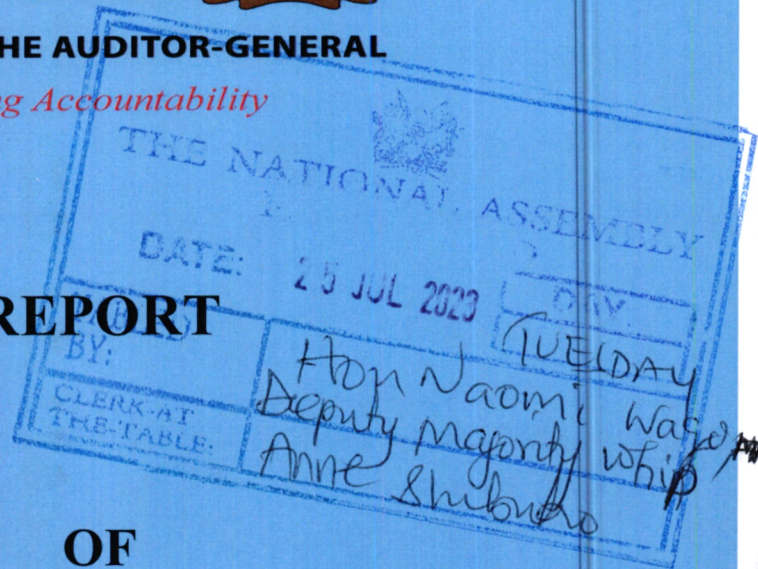 HE AUDITOR-GENERAL
g Accountability
THE NATIONAL ASSEMBLY
DATE: 25 JUL 2023
DAY
TUESDAY
REPORT
BY:
Hon Naomi
Deputy Majority Whip
CLERK-AT
THE-TABLE:
Anne
OF